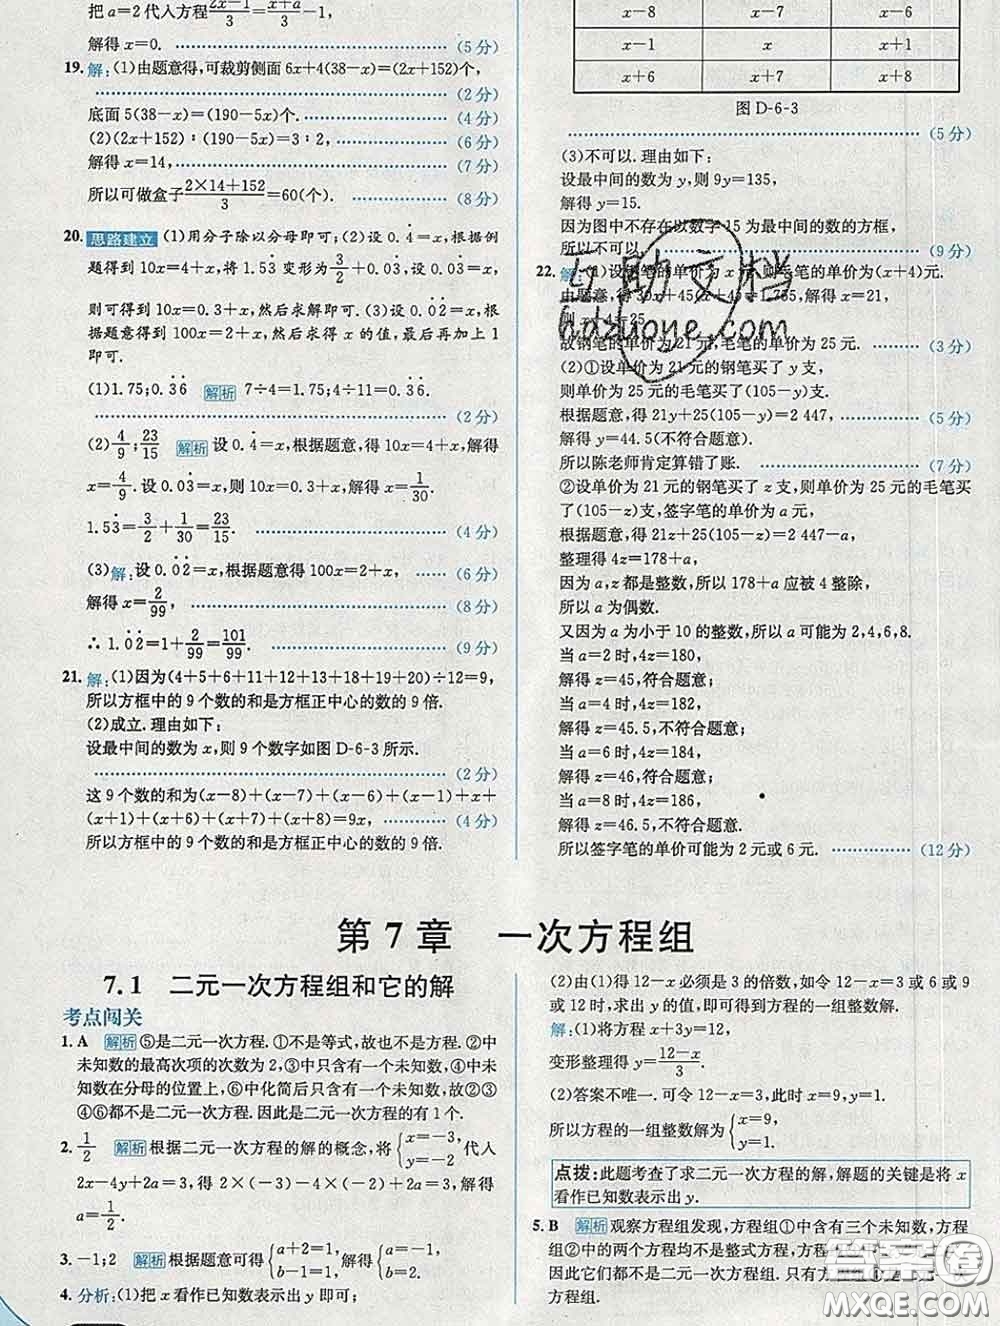 把 a=2 代入方程(2x-1)/3=(x+a)/3-1,
解得 x=0. (5 分)
19. 解:(1)由题意得,可裁剪侧面 6x+4(38-x)=(2x+152)个,
(2 分)
底面 5(38-x)=(190-5x)个. (4 分)
(2)(2x+152):(190-5x)=3:2, (6 分)
解得 x=14, (7 分)
所以可做盒子(2×14+152)/3=60(个). (8 分)
20. 思路建立 (1)用分子除以分母即可;(2)设 0.4̇=x,根据例
题得到 10x=4+x,将 1.53̇ 变形为 3/2+0.03̇,设 0.03̇=x,
则可得到 10x=0.3̇+x,然后求解即可.(3)设 0.0̇2̇=x,根据
题意得到 100x=2+x,然后求得 x 的值,最后再加上 1
即可.
(1)1.75;0.3̇6̇ 解析 7÷4=1.75;4÷11=0.3̇6̇.
(2 分)
(2)4/9;23/15 解析 设 0.4̇=x,根据题意,得 10x=4+x,解得
x=4/9.设 0.03̇=x,则 10x=0.3̇+x,解得 x=1/30.
1.53̇=3/2+1/30=23/15. (4 分)
(3)解:设 0.0̇2̇=x,根据题意得 100x=2+x, (6 分)
解得 x=2/99, (8 分)
∴ 1.0̇2̇=1+2/99=101/99. (9 分)
21. 解:(1)因为(4+5+6+11+12+13+18+19+20)÷12=9,
所以方框中的 9 个数的和是方框正中心的数的 9 倍.
(2)成立.理由如下:
设最中间的数为 x,则 9 个数字如图 D-6-3 所示.
(2 分)
这 9 个数的和为(x-8)+(x-7)+(x-6)+(x-1)+x+
(x+1)+(x+6)+(x+7)+(x+8)=9x, (4 分)
所以方框中的 9 个数的和是方框正中心的数的 9 倍.
x-8 x-7 x-6
x-1 x x+1
x+6 x+7 x+8
图 D-6-3
(5 分)
(3)不可以.理由如下:
设最中间的数为 y,则 9y=135,
解得 y=15.
因为图中不存在以数字 15 为最中间的数的方框,
所以不可以. (9 分)
22. 解:(1)设钢笔的单价为 x 元,则毛笔的单价为(x+4)元.
由题意,得 30x+45(x+4)=1 755,解得 x=21,
则 x+4=25.
故钢笔的单价为 21 元,毛笔的单价为 25 元. (3 分)
(2)①设单价为 21 元的钢笔买了 y 支,
则单价为 25 元的毛笔买了(105-y)支.
根据题意,得 21y+25(105-y)=2 447, (5 分)
解得 y=44.5(不符合题意).
所以陈老师肯定算错了账. (7 分)
②设单价为 21 元的钢笔买了 z 支,则单价为 25 元的毛笔买
了(105-z)支,签字笔的单价为 a 元,
根据题意,得 21z+25(105-z)=2 447-a,
整理得 4z=178+a,
因为 a,z 都是整数,所以 178+a 应被 4 整除,
所以 a 为偶数.
又因为 a 为小于 10 的整数,所以 a 可能为 2,4,6,8.
当 a=2 时,4z=180,
解得 z=45,符合题意;
当 a=4 时,4z=182,
解得 z=45.5,不符合题意;
当 a=6 时,4z=184,
解得 z=46,符合题意;
当 a=8 时,4z=186,
解得 z=46.5,不符合题意.
所以签字笔的单价可能为 2 元或 6 元. (12 分)
互助文档
hdzuoye.com
第 7 章 一次方程组
7.1 二元一次方程组和它的解
考点闯关
1. A 解析 ⑤是二元一次方程.①不是等式,故也不是方程.②中
未知数的最高次项的次数为 2,③中只含有一个未知数,④中未
知数在分母的位置上,⑥中化简后只含有一个未知数,故②③
④⑥都不是二元一次方程.因此是二元一次方程的有 1 个.
2. 1/2 解析 根据二元一次方程的解的概念,将{x=-3, y=-2 代入
2x-4y+2a=3,得 2×(-3)-4×(-2)+2a=3,解得
a=1/2.
3. -1;2 解析 根据题意可得{a+2=1, b-1=1, 解得{a=-1, b=2.
4. 分析:(1)把 x 看作已知数表示出 y 即可;
(2)由(1)得 12-x 必须是 3 的倍数,如令 12-x=3 或 6 或 9
或 12 时,求出 y 的值,即可得到方程的一组整数解.
解:(1)将方程 x+3y=12,
变形整理得 y=(12-x)/3.
(2)答案不唯一.可令 12-x=3,此时 x=9,y=1.
所以方程的一组整数解为{x=9, y=1.
点拨:此题考查了求二元一次方程的解,解题的关键是将 x
看作已知数表示出 y.
5. B 解析 观察方程组发现,方程组①中含有三个未知数,方程
组②中的两个方程均不是整式方程,方程组
因此它们都不是二元一次方程组.只有方程组
方程组.
答案圈
MXQE.COM